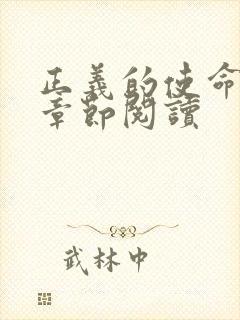 正義的使命
章節閱讀
武林中